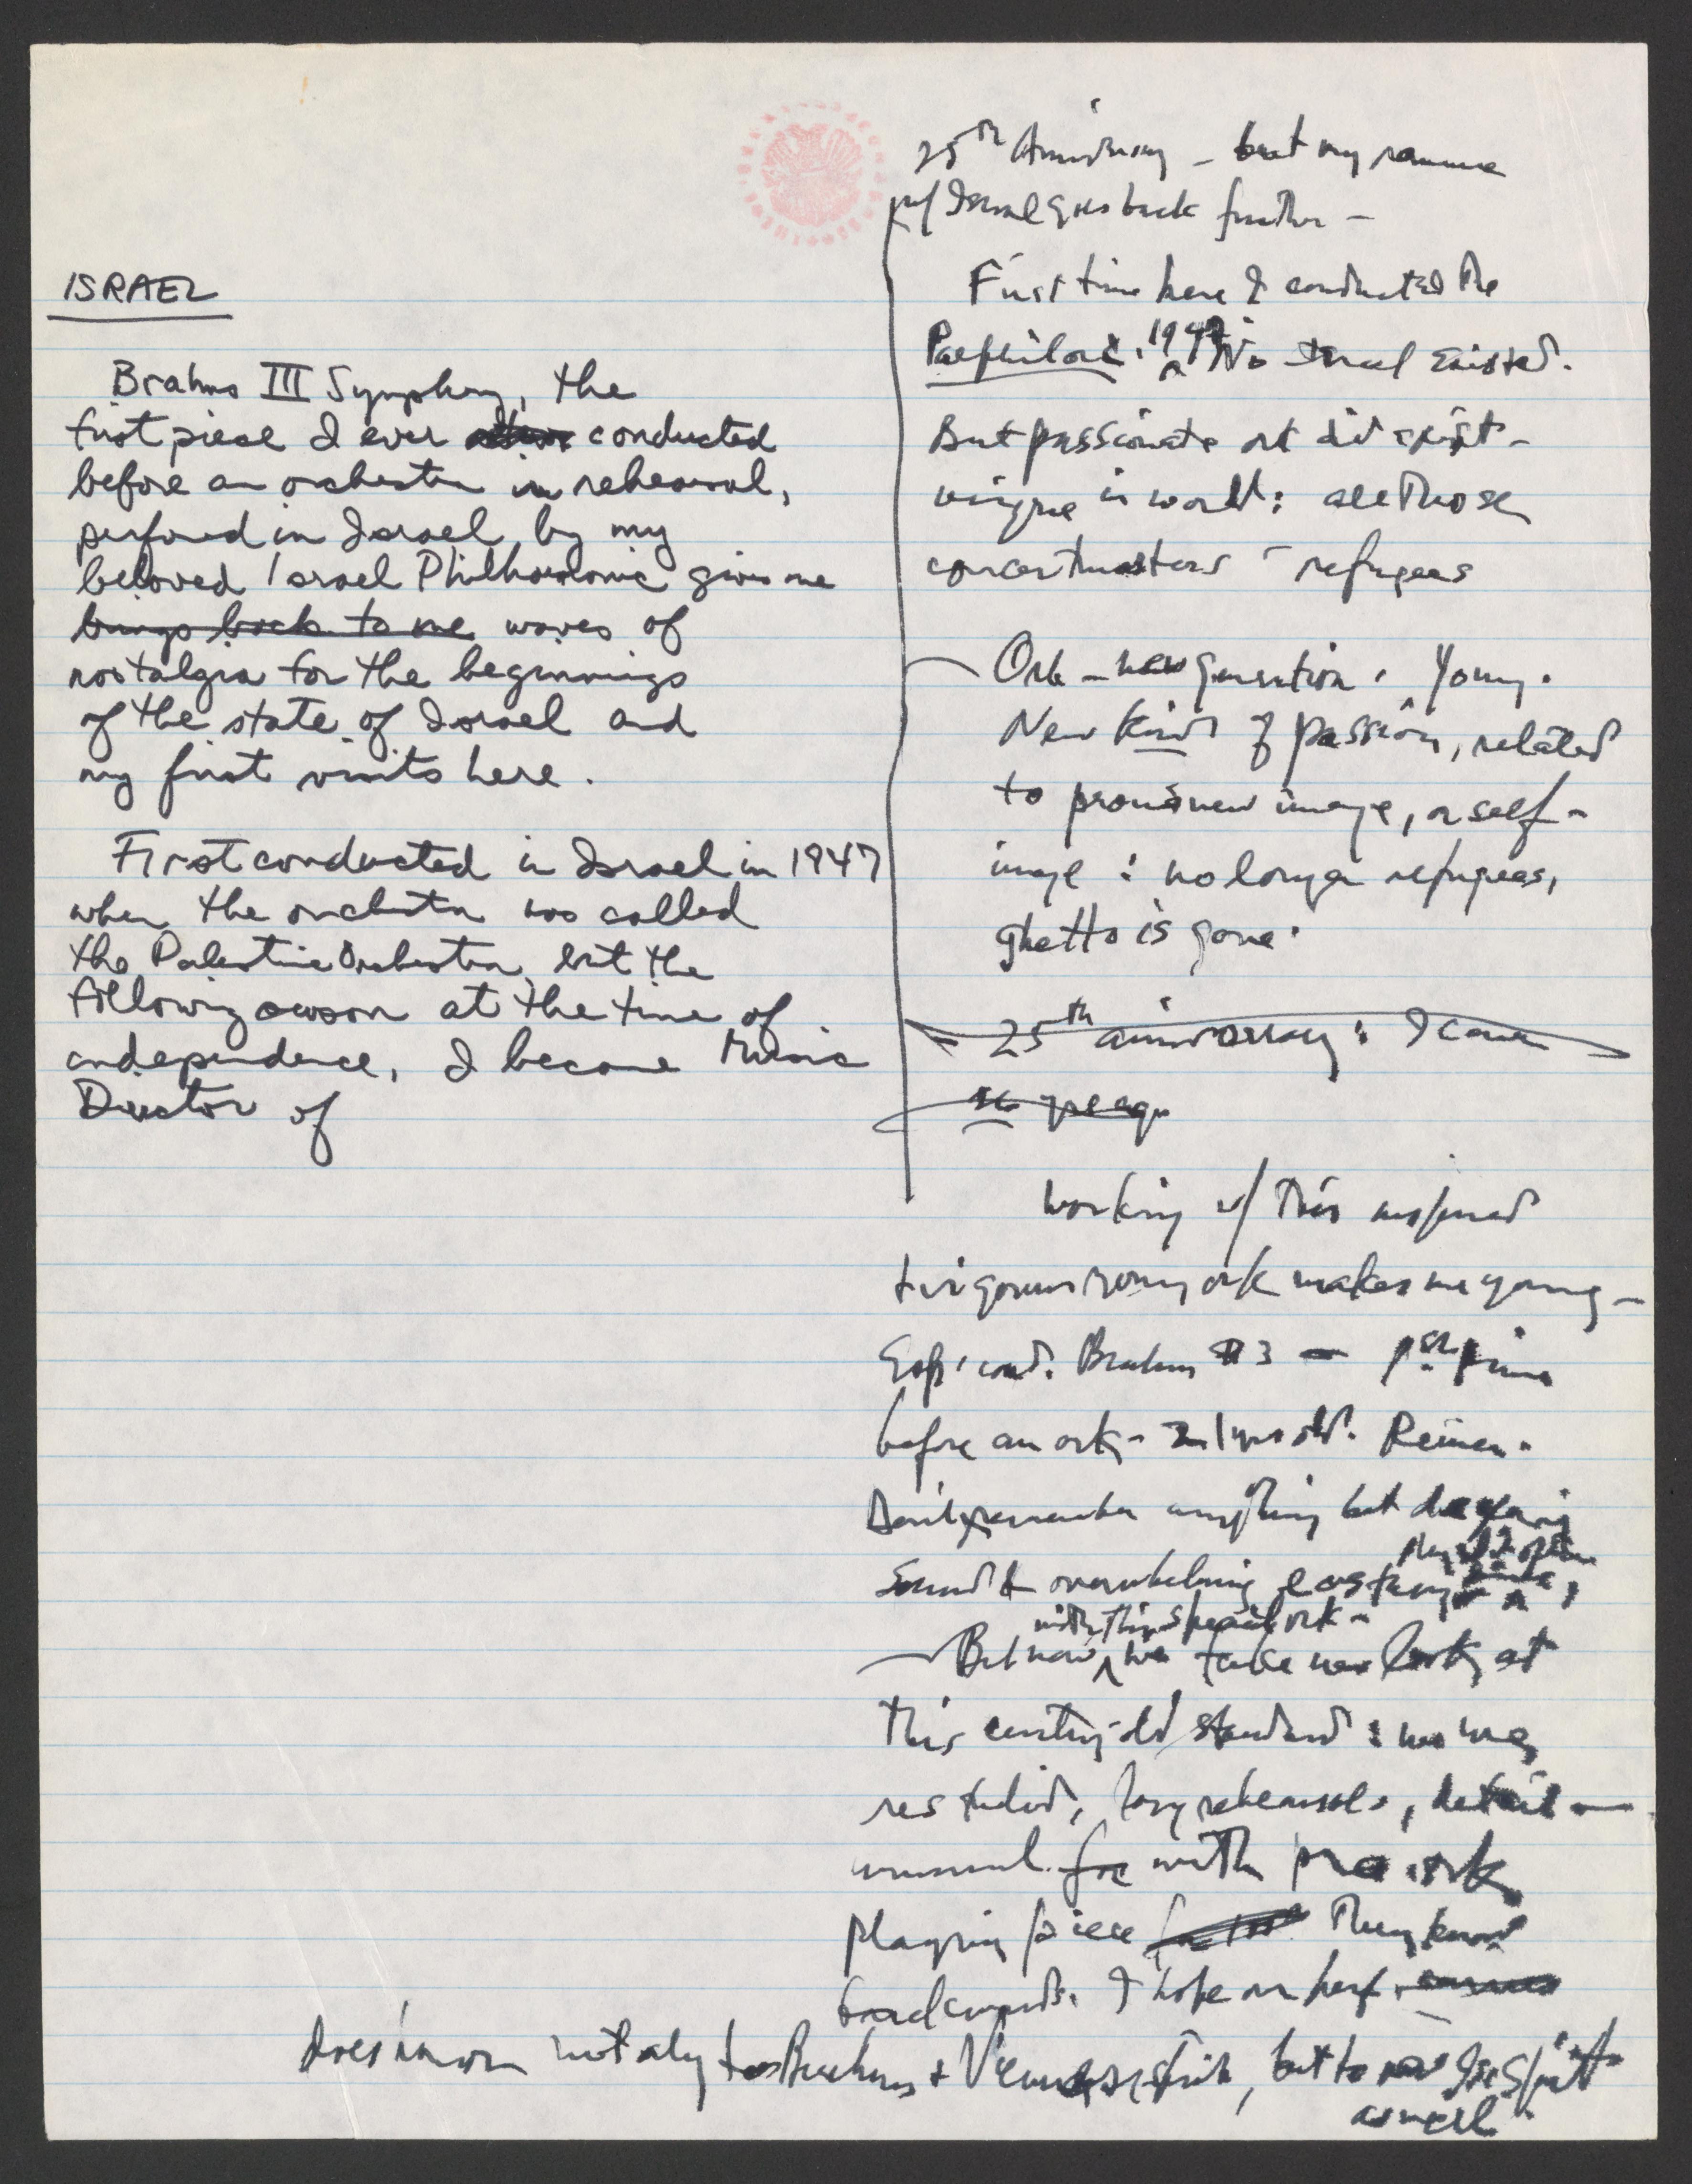 ISRAEL
Brahms III Symphony, the
first piece I ever conducted
before an orchestra in rehearsal,
perfomed in Israel by my
beloved Israel Philharmonic gives me
brings back to me waves of
nostalgia for the beginnings
of the state of Israel and
my first visits here.
First conducted in Israel in 1947
when the orchestra was called
the Palestine Orchestra, but the
following season at the time of
independence, I became Music
Director of
25th Anniversary - but my romance
w/ Israel goes back further -
First time here I conducted the
1947. No Israel existed.
But passionate ork did exist -
unique in world: all those
concertmasters - refugees
Ork - new generation. Young.
New kind of passion, related
to proud new image, a self-
image: no longer refugees,
ghetto is gone.
25th anniversary: I came
working w/ this inspired
+ vigorous young ork makes me young -
Esp. cond. Brahms #3 - 1st time
before an ork - 21 yrs old. Reiner.
Don't remember anything but
Sound & overwhelming ecstasy
with this special ork -
But now we take new look at
this century-old standard:
restudied, long rehearsals, detail -
unusual for with pro. ork
playing piece they know
backwards. I hope our perf.
does honor not only to Brahms + Viennese spirit, but to Isr. Spirit
as well.